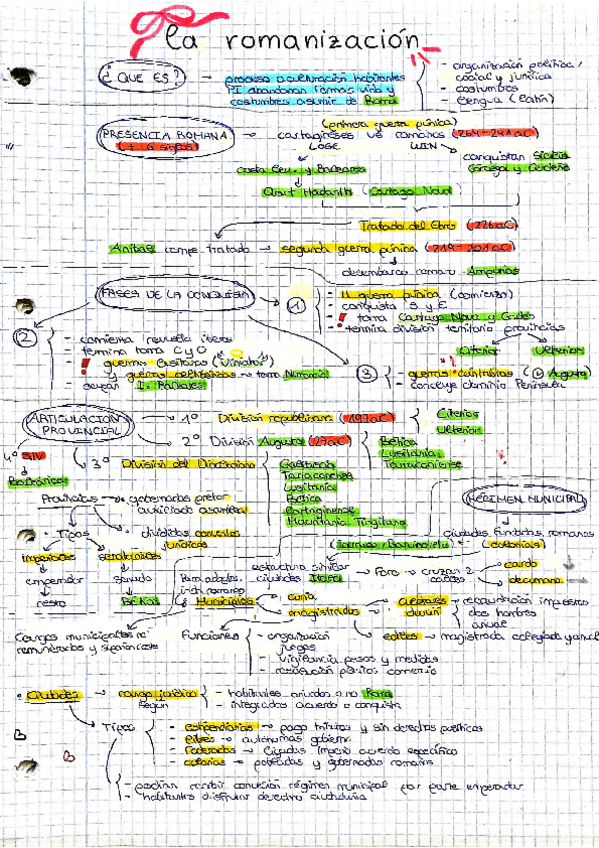 la romanización
¿QUE ES? → proceso aculturación habitantes
PI abandonan formas vida y
costumbres asumir de Roma
- organización política /
social y jurídica
- costumbres
- lengua (latín)
PRESENCIA ROMANA
(± 6 siglos)
(primera guerra púnica)
→ cartagineses vs romanos (264-241 aC)
LOSE WIN
conquistan Sicilia
Córcega y Cerdeña
y Baleares
Qart Hadasht (Cartago Nova)
Tratado del Ebro (226 aC)
Aníbal rompe tratado → segunda guerra púnica (219-201 aC)
desembarco romano Ampurias
FASES DE LA CONQUISTA
1
- II guerra púnica (comienzo)
- conquista S y E
- toma Cartago Nova y Gades
- termina división territorio provincias
Citerior Ulterior
2
- comienza revuelta
- termina toma C y O
- guerras lusitanas (Viriato)
- y guerras celtíberas → toma Numancia
I. Baleares
3
- guerras cántabras ( Augusto)
- concluye dominio Península
ARTICULACION
PROVINCIAL
→ 1º División republicana (197 aC)
Citerior
Ulterior
→ 2º División Augusto (27 aC)
Bética
Lusitania
Tarraconense
4º SIV
Baleárica
3º División del Diocleciano
Gallaecia
Tarraconense
Lusitania
Bética
Cartaginense
Mauritania Tingitana
Provincias → gobernadas pretor
auxiliado asamblea
→ Tipos
divididas conventos
jurídicos
imperiales senatoriales
emperador senado
resto Bética
RÉGIMEN MUNICIPAL
ciudades fundadas romanos
(colonias)
estructura similar
ciudades Italia → Foro → cruzan 2
calles
→ cardo
→ decumano
Para adoptar
inst. romanas
Municipios
→ curia
→ magistrados
→ duunviri → recaudación impuestos
dos hombres
anual
→ ediles → magistrado colegiado y anual
Cargos municipales no
remunerados y
Funciones
- organización
juegos
- vigilancia pesos y medidas
- resolución pleitos comercio
• Ciudades → rango jurídico
según
- habitantes oriundos o no Roma
- integradas acuerdo o conquista
→ Tipos
- estipendiarias → pago tributos y sin derechos políticos
- libres → autónomas gobierno
- federadas → Ciudades Imperio acuerdo específico
- colonias → pobladas y gobernadas romanos
- podían recibir concesión régimen municipal por parte emperador
- habitantes disfrutar derecho ciudadanía